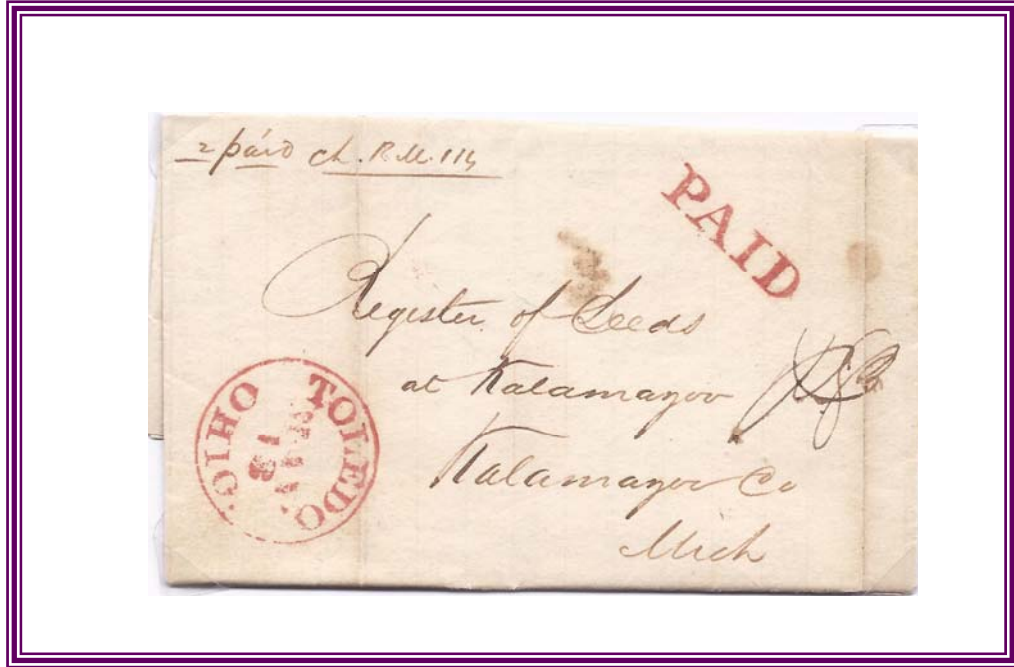 2 paid ch. R.M. 114
PAID
Register of Deeds
at Kalamazoo
Kalamazoo Co
Mich
TOLEDO. OHIO.
18